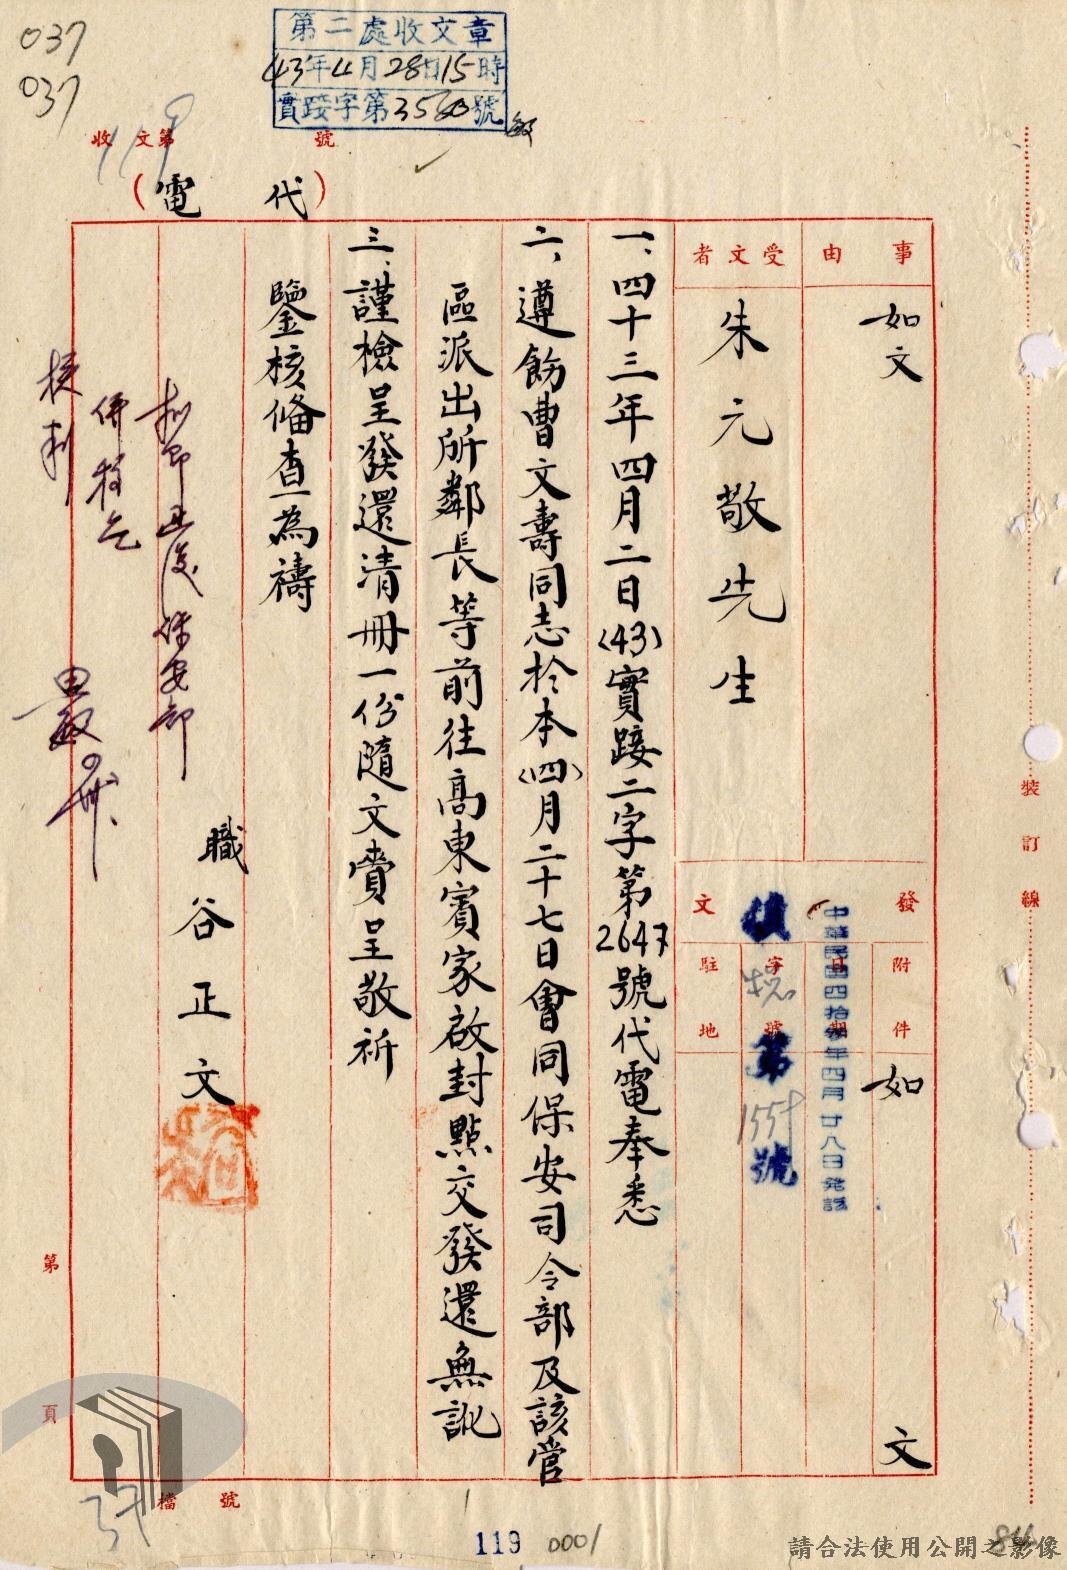 037
037
第二處收文章
43年4月28日15時
實踐字第3560號
收文第119號
（代電）
事由
如文
受文者
朱元敬先生
發文
附件
如文
日期
中華民國四拾參年四月廿八日發
字號
第
號
駐地
一、四十三年四月二日〈43〉實踐二字第2647號代電奉悉
二、遵飭曹文壽同志於本〈四〉月二十七日會同保安司令部及該管
區派出所鄰長等前往高東賓家啟封點交發還無訛
三、謹檢呈發還清冊一份隨文賫呈敬祈
鑒核俻查為禱
職
谷正文
裝訂線
第頁
檔號
37
119
0001
請合法使用公開之影像